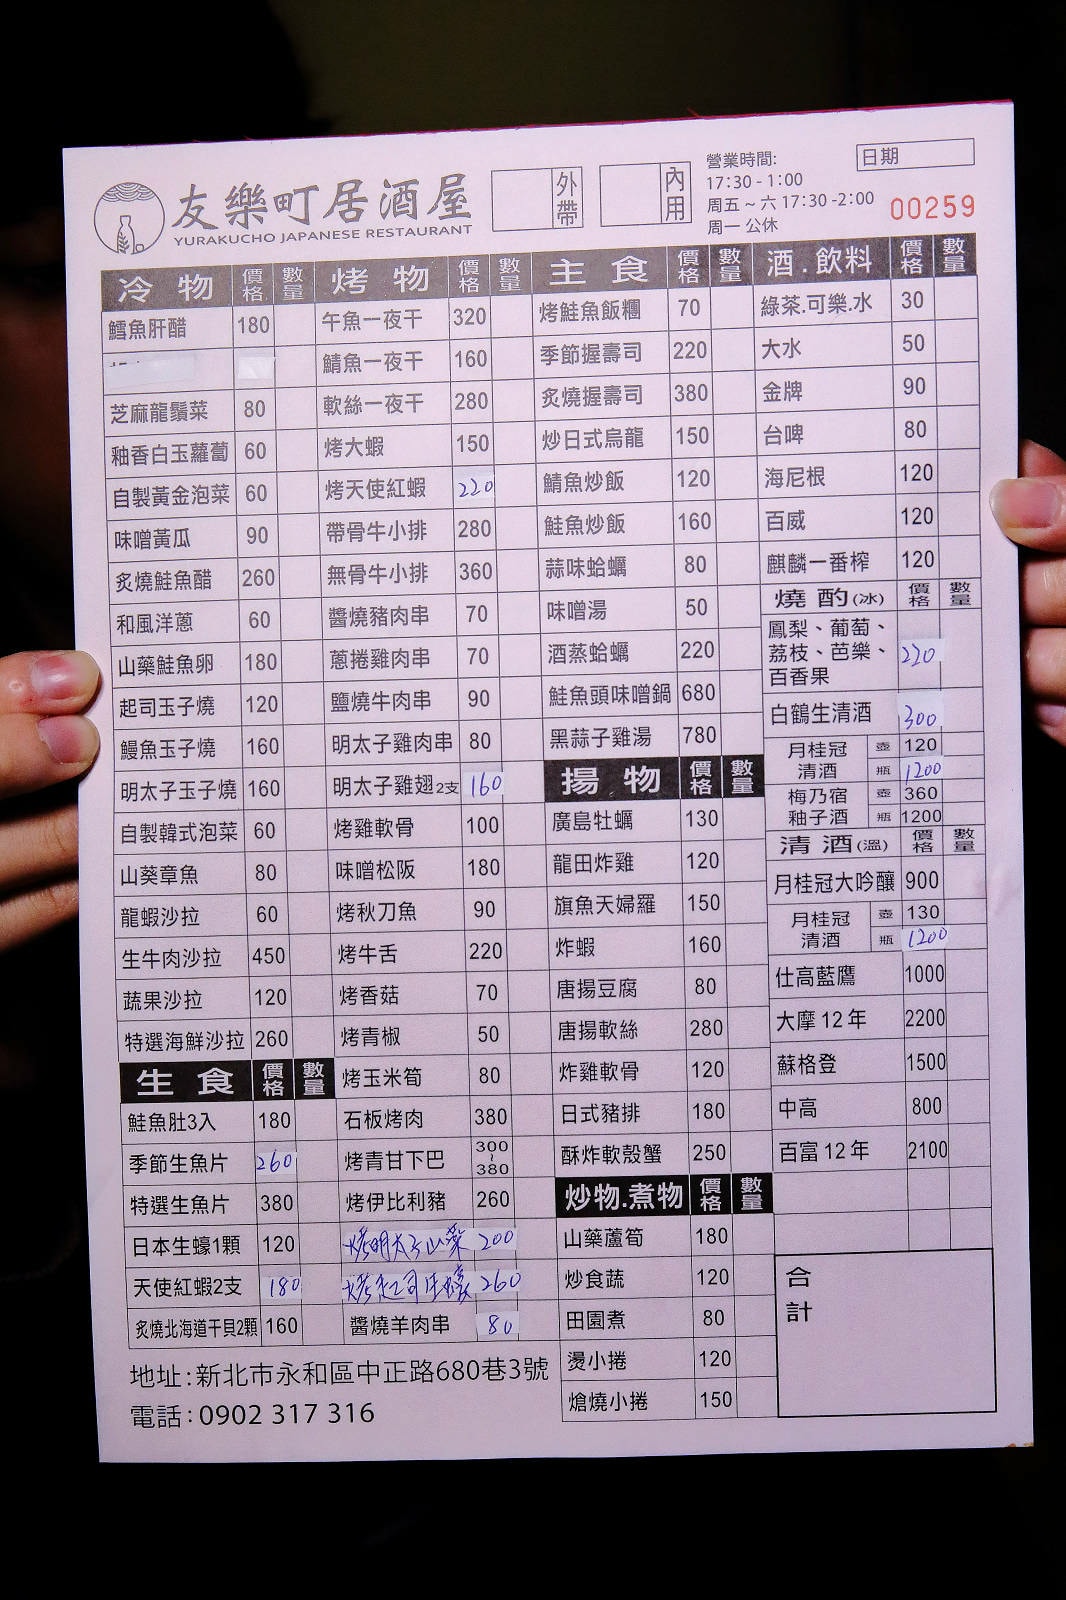 友樂町居酒屋
YURAKUCHO JAPANESE RESTAURANT
外帶
內用
營業時間:
17:30 - 1:00
周五 ~ 六 17:30 -2:00
周一 公休
日期
00259
冷物 價格 數量
鱈魚肝醋 180
芝麻龍鬚菜 80
釉香白玉蘿蔔 60
自製黃金泡菜 60
味噌黃瓜 90
炙燒鮭魚醋 260
和風洋蔥 60
山藥鮭魚卵 180
起司玉子燒 120
鰻魚玉子燒 160
明太子玉子燒 160
自製韓式泡菜 60
山葵章魚 80
龍蝦沙拉 60
生牛肉沙拉 450
蔬果沙拉 120
特選海鮮沙拉 260
生食 價格 數量
鮭魚肚3入 180
季節生魚片 260
特選生魚片 380
日本生蠔1顆 120
天使紅蝦2支 180
炙燒北海道干貝2顆 160
烤物 價格 數量
午魚一夜干 320
鯖魚一夜干 160
軟絲一夜干 280
烤大蝦 150
烤天使紅蝦 220
帶骨牛小排 280
無骨牛小排 360
醬燒豬肉串 70
蔥捲雞肉串 70
鹽燒牛肉串 90
明太子雞肉串 80
明太子雞翅2支 160
烤雞軟骨 100
味噌松阪 180
烤秋刀魚 90
烤牛舌 220
烤香菇 70
烤青椒 50
烤玉米筍 80
石板烤肉 380
烤青甘下巴 300~380
烤伊比利豬 260
烤明太子山藥 200
烤起司生蠔 260
醬燒羊肉串 80
主食 價格 數量
烤鮭魚飯糰 70
季節握壽司 220
炙燒握壽司 380
炒日式烏龍 150
鯖魚炒飯 120
鮭魚炒飯 160
蒜味蛤蠣 80
味噌湯 50
酒蒸蛤蠣 220
鮭魚頭味噌鍋 680
黑蒜子雞湯 780
揚物 價格 數量
廣島牡蠣 130
龍田炸雞 120
旗魚天婦羅 150
炸蝦 160
唐揚豆腐 80
唐揚軟絲 280
炸雞軟骨 120
日式豬排 180
酥炸軟殼蟹 250
炒物.煮物 價格 數量
山藥蘆筍 180
炒食蔬 120
田園煮 80
燙小捲 120
熗燒小捲 150
酒.飲料 價格 數量
綠茶.可樂.水 30
大水 50
金牌 90
台啤 80
海尼根 120
百威 120
麒麟一番榨 120
燒酌(冰) 價格 數量
鳳梨、葡萄、
荔枝、芭樂、 220
百香果
白鶴生清酒 300
月桂冠清酒 壺 120
瓶 1200
梅乃宿釉子酒 壺 360
瓶 1200
清酒(溫) 價格 數量
月桂冠大吟釀 900
月桂冠清酒 壺 130
瓶 1200
仕高藍鷹 1000
大摩12年 2200
蘇格登 1500
中高 800
百富12年 2100
合計
地址:新北市永和區中正路680巷3號
電話:0902 317 316